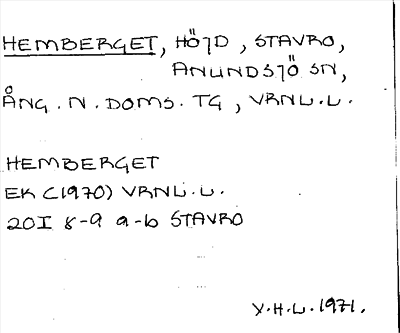 HEMBERGET, HÖJD, STAVRO,
ANUNDSJÖ SN,
ÅNG. N. DOMS. TG, VRNL.L.
HEMBERGET
EK (1970) VRNL.L.
20I 8-9 a-b STAVRO
Y.H.L. 1971.